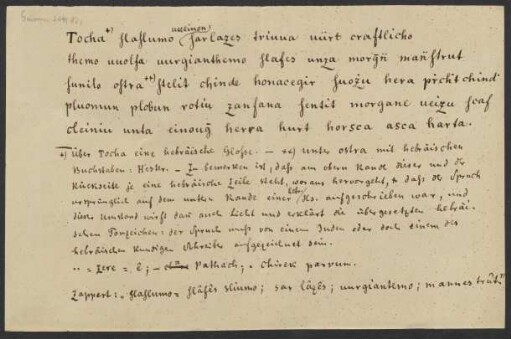 Tocha *) slaslumo uueinon sarlazes triuua uúrt craftlicho
themo uuolfa uurgianthemo slafes unza morgū manſtrut
sunilo ostra **) stelit chinde honacegir suozu hera prichit chind
pluomun plobun rotiu zanfana sentit morgane ueizu scaf
cleiniu unta einouga herra hurt horsca asca harta.
*) Über Tocha eine hebräische Glosse. — **) unter ostra mit hebräischen
Buchstaben: — Zu bemerken ist, daß am obern Rande dieser und der
Rückseite je eine hebräische Zeile steht, woraus hervorgeht, daß der Spruch
ursprünglich auf dem untern Rande einer hebr. Hs. aufgeschrieben war, und
dieser Umstand wirft dann auch Licht und erklärt die übergesetzten hebräi-
schen Tonzeichen: der Spruch muß von einem Juden oder doch einem des
Hebräischen kundigen Schreiber aufgezeichnet sein.
·· = Zere = ê; — Pathach; . Chirek parvum.
Zappert: „slaslumo = slâfês sliumo; sar lâzês; uurgiantemo; mannes trût."